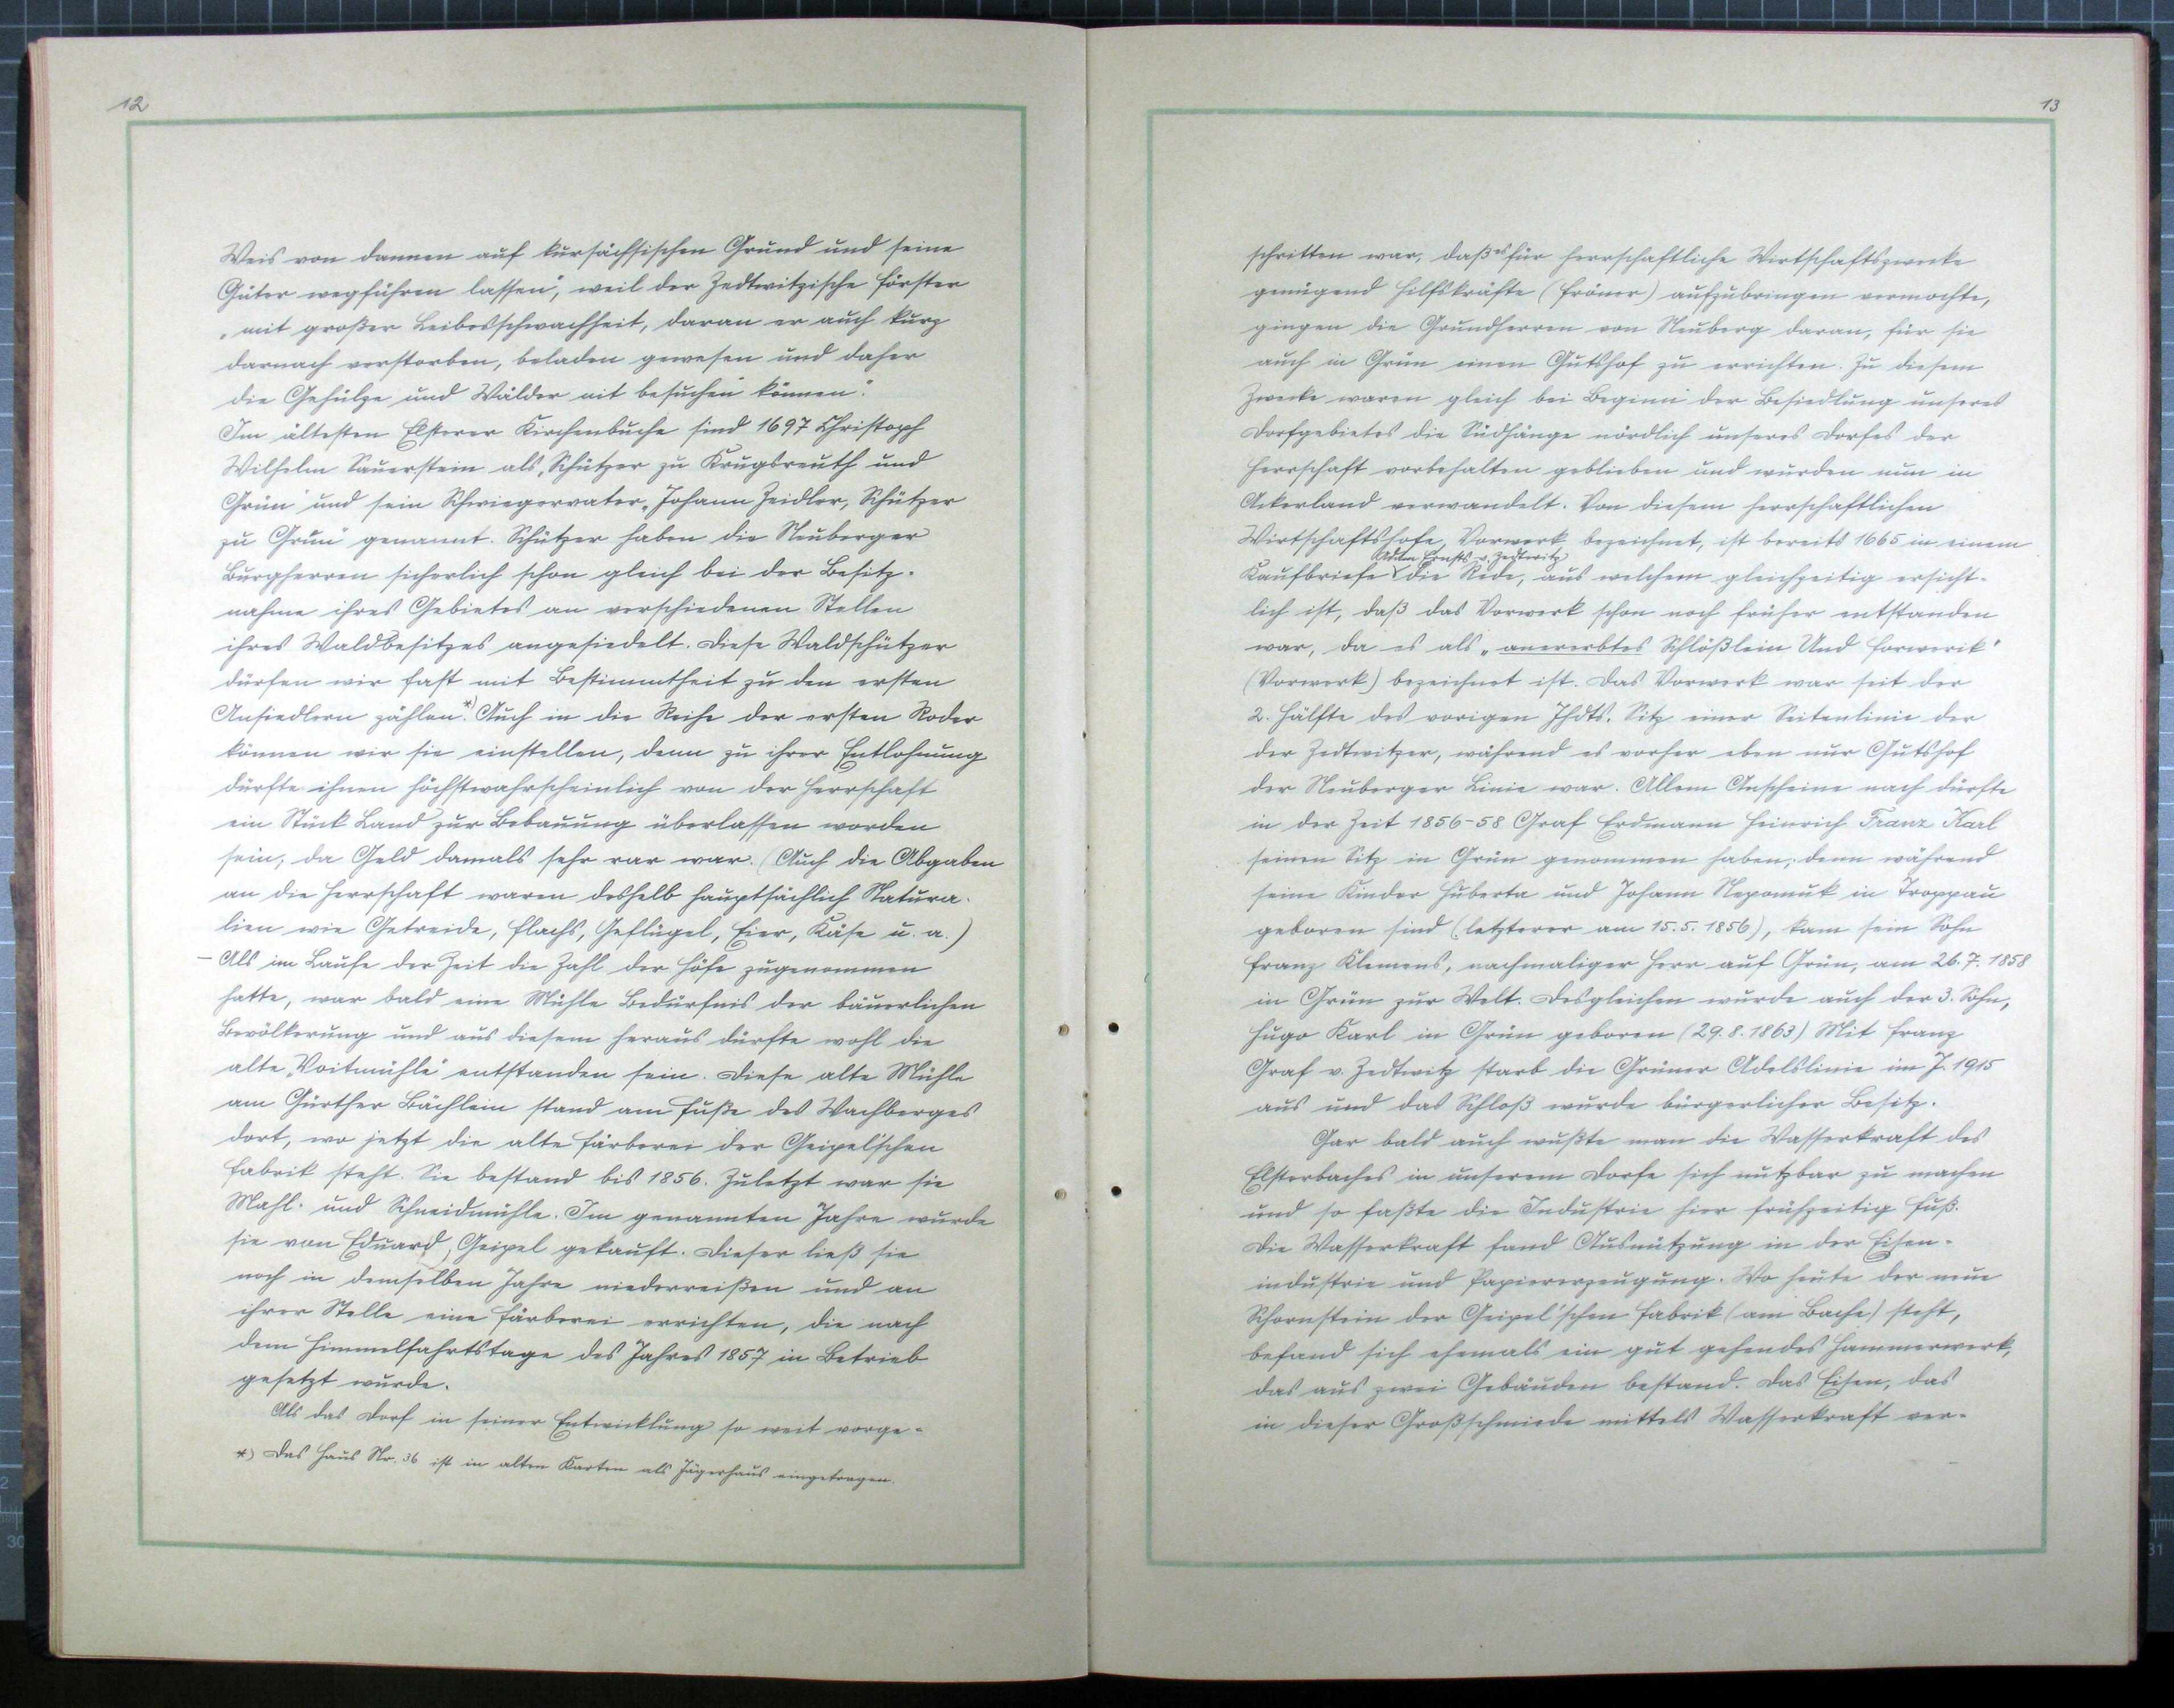 12
Weis von dannen auf kursächsischen Grund und seine
Güter wegführen lassen", weil der Zedtwitzische Förster
„mit großer Leibesschwachheit, daran er auch kurz
darnach verstorben, beladen gewesen und daher
die Gehülze und Wälder nit besuchen können."
Im ältesten Elsterer Kirchenbuche sind 1697 Christoph
Wilhelm Sauerstein als „Schützer zu Krugsreuth und
Grün" und sein Schwiegervater „Johann Zeidler, Schützer
zu Grün" genannt. Schützer haben die Neuberger
Burgherren sicherlich schon gleich bei der Besitz-
nahme ihres Gebietes an verschiedenen Stellen
ihres Waldbesitzes angesiedelt. Diese Waldschützer
dürfen wir fast mit Bestimmtheit zu den ersten
Ansiedlern zählen.*) Auch in die Reihe der ersten Roder
können wir sie einstellen, denn zu ihrer Entlohnung
dürfte ihnen höchstwahrscheinlich von der Herrschaft
ein Stück Land zur Bebauung überlassen worden
sein, da Geld damals sehr rar war. (Auch die Abgaben
an die Herrschaft waren deshalb hauptsächlich Natura-
lien wie Getreide, Flachs, Geflügel, Eier, Käse u. a.)
– Als im Laufe der Zeit die Zahl der Höfe zugenommen
hatte, war bald eine Mühle Bedürfnis der bäuerlichen
Bevölkerung und aus diesem heraus dürfte wohl die
alte „Voitmühle" entstanden sein. Diese alte Mühle
am Gürther Bächlein stand am Fuße des Wachberges
dort, wo jetzt die alte Färberei der Geipel'schen
Fabrik steht. Sie bestand bis 1856. Zuletzt war sie
Mahl- und Schneidmühle. Im genannten Jahre wurde
sie von Eduard Geipel gekauft. Dieser ließ sie
noch in demselben Jahre niederreißen und an
ihrer Stelle eine Färberei errichten, die nach
dem Himmelfahrtstage des Jahres 1857 in Betrieb
gesetzt wurde.
Als das Dorf in seiner Entwicklung so weit vorge-
*) Das Haus Nr. 36 ist in alten Karten als Jägerhaus eingetragen.
13
schritten war, daß es für herrschaftliche Wirtschaftszwecke
genügend Hilfskräfte (Fröner) aufzubringen vermochte,
gingen die Grundherren von Neuberg daran, für sie
auch in Grün einen Gutshof zu errichten. Zu diesem
Zwecke waren gleich bei Beginn der Besiedlung unseres
Dorfgebietes die Südhänge nördlich unseres Dorfes der
Herrschaft vorbehalten geblieben und wurden nun in
Ackerland verwandelt. Von diesem herrschaftlichen
Wirtschaftshofe, Vorwerk bezeichnet, ist bereits 1665 in einem
Adam Ernsts v. Zedtwitz
Kaufbriefe die Rede, aus welchem gleichzeitig ersicht-
lich ist, daß das Vorwerk schon noch früher entstanden
war, da es als „anererbtes Schlößlein Und Forwerik"
(Vorwerk) bezeichnet ist. Das Vorwerk war seit der
2. Hälfte des vorigen Jhdts. Sitz einer Seitenlinie der
der Zedtwitzer, während es vorher eben nur Gutshof
der Neuberger Linie war. Allem Anscheine nach dürfte
in der Zeit 1856-58 Graf Erdmann Heinrich Franz Karl
seinen Sitz in Grün genommen haben; denn während
seine Kinder Huberta und Johann Nepomuk in Troppau
geboren sind (letzterer am 15.5.1856), kam sein Sohn
Franz Klemens, nachmaliger Herr auf Grün, am 26.7.1858
in Grün zur Welt. Desgleichen wurde auch der 3. Sohn,
Hugo Karl in Grün geboren (29.8.1863) Mit Franz
Graf v. Zedtwitz starb die Grüner Adelslinie im J. 1915
aus und das Schloß wurde bürgerlicher Besitz.
Gar bald auch wußte man die Wasserkraft des
Elsterbaches in unserem Dorfe sich nutzbar zu machen
und so faßte die Industrie hier frühzeitig Fuß.
Die Wasserkraft fand Ausnützung in der Eisen-
industrie und Papiererzeugung. Wo heute der neue
Schornstein der Geipel'schen Fabrik (am Bache) steht,
befand sich ehemals ein gut gehendes Hammerwerk,
das aus zwei Gebäuden bestand. Das Eisen, das
in dieser Großschmiede mittels Wasserkraft ver-